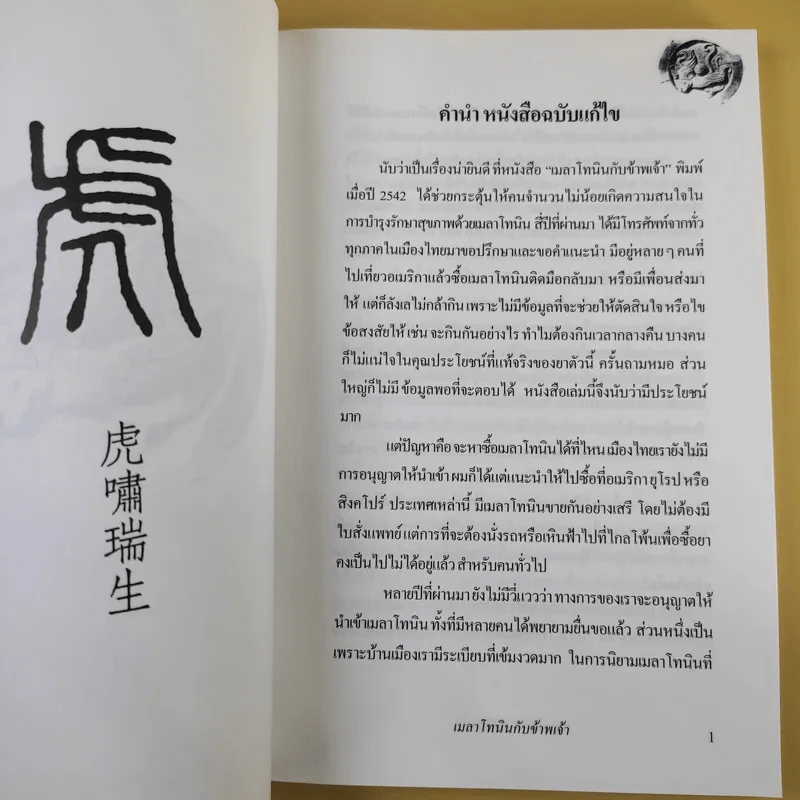 虎
虎嘯瑞生
คำนำ หนังสือฉบับแก้ไข
นับว่าเป็นเรื่องน่ายินดี ที่หนังสือ “เมลาโทนินกับข้าพเจ้า” พิมพ์
เมื่อปี 2542 ได้ช่วยกระตุ้นให้คนจำนวนไม่น้อยเกิดความสนใจใน
การบำรุงรักษาสุขภาพด้วยเมลาโทนิน สี่ปีที่ผ่านมา ได้มีโทรศัพท์จากทั่ว
ทุกภาคในเมืองไทยมาขอปรึกษาและขอคำแนะนำ มีอยู่หลาย ๆ คนที่
ไปเที่ยวอเมริกาแล้วซื้อเมลาโทนินติดมือกลับมา หรือมีเพื่อนส่งมา
ให้ แต่ก็ลังเลไม่กล้ากิน เพราะไม่มีข้อมูลที่จะช่วยให้ตัดสินใจ หรือไข
ข้อสงสัยให้ เช่น จะกินกันอย่างไร ทำไมต้องกินเวลากลางคืน บางคน
ก็ไม่แน่ใจในคุณประโยชน์ที่แท้จริงของยาตัวนี้ ครั้นถามหมอ ส่วน
ใหญ่ก็ไม่มี ข้อมูลพอที่จะตอบได้ หนังสือเล่มนี้จึงนับว่ามีประโยชน์
มาก
แต่ปัญหาคือ จะหาซื้อเมลาโทนินได้ที่ไหน เมืองไทยเรายังไม่มี
การอนุญาตให้นำเข้า ผมก็ได้แต่แนะนำให้ไปซื้อที่อเมริกา ยุโรป หรือ
สิงคโปร์ ประเทศเหล่านี้ มีเมลาโทนินขายกันอย่างเสรี โดยไม่ต้องมี
ใบสั่งแพทย์ แต่การที่จะต้องนั่งรถหรือเหินฟ้าไปที่ไกลโพ้นเพื่อซื้อยา
คงเป็นไปไม่ได้อยู่แล้ว สำหรับคนทั่วไป
หลายปีที่ผ่านมา ยังไม่มีวี่แววว่า ทางการของเราจะอนุญาตให้
นำเข้าเมลาโทนิน ทั้งที่มีหลายคนได้พยายามยื่นขอแล้ว ส่วนหนึ่งเป็น
เพราะบ้านเมืองเรามีระเบียบที่เข้มงวดมาก ในการนิยามเมลาโทนินที่
เมลาโทนินกับข้าพเจ้า
1